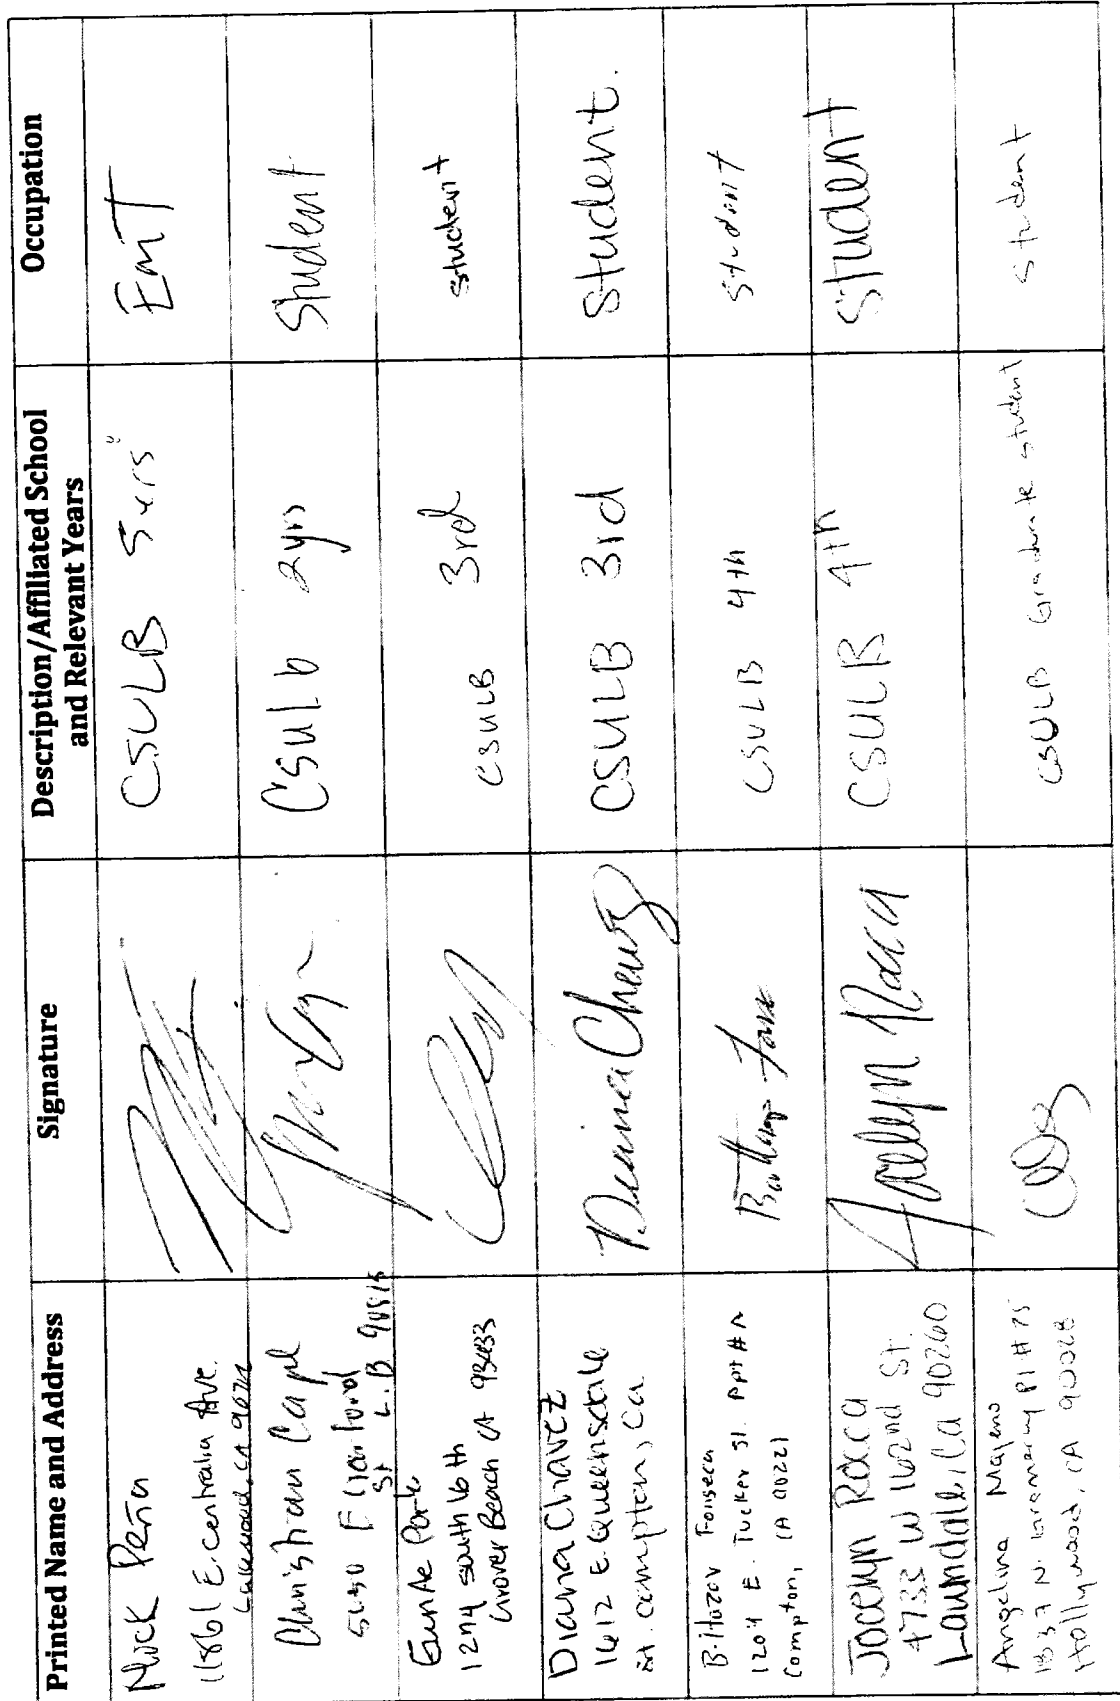 Printed Name and Address
Signature
Description/Affiliated School
and Relevant Years
Occupation
Nick Peña
11861 E. Centralia Ave.
CA
CSULB 5yrs
EmT
Christian
E
St L.B 90815
Csulb 2yrs
Student
EunAe Park
1274 south 16th
Grover Beach CA 93433
CSULB 3rd
student
Diana Chavez
1612 E. Queensdale
st. compton, Ca
Diana Chavez
CSULB 3rd
Student.
Fonseca
1204 E. Tucker St. Apt # A
Compton, CA 90221
CSULB 4th
Student
Jocelyn Rocca
4733 W 162nd St.
Laundale, Ca 90260
Jocelyn Rocca
CSULB 4th
Student
Angelina Mayeno
1837 N. Pl # 75
Hollywood, CA 90028
CSULB Graduate student
Student